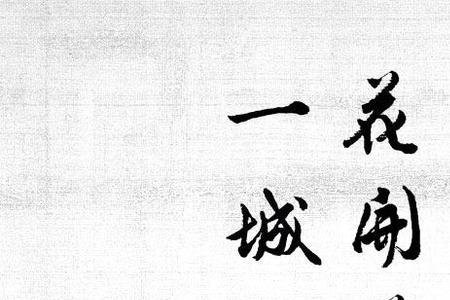 花開
一城